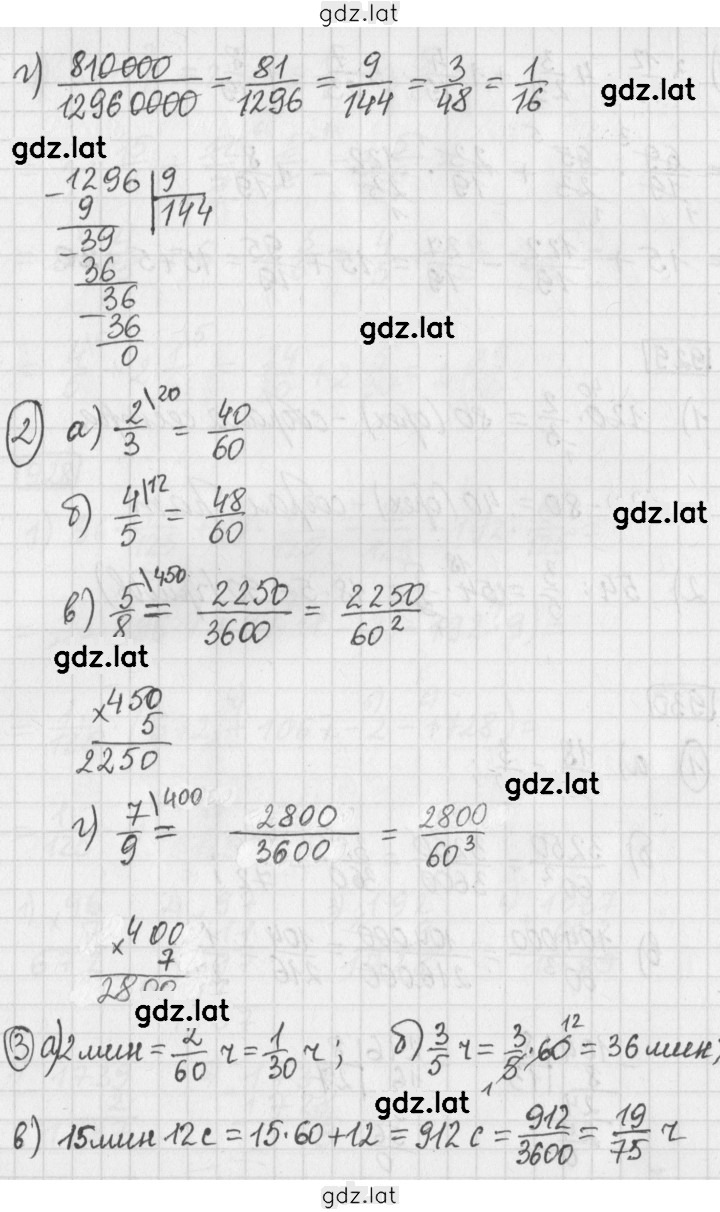 gdz.lat
г) 810000/12960000 = 81/1296 = 9/144 = 3/48 = 1/16
gdz.lat
gdz.lat
- 1296 | 9
9 | 144
- 39
36
- 36
36
0
gdz.lat
2 а) 2/3 \20 = 40/60
б) 4/5 \12 = 48/60
gdz.lat
в) 5/8 \450 = 2250/3600 = 2250/60²
gdz.lat
× 450
5
2250
gdz.lat
г) 7/9 \400 = 2800/3600 = 2800/60³
× 400
7
2800
gdz.lat
3 а) 2 мин = 2/60 ч = 1/30 ч; б) 3/5 ч = 3/5 · 60 = 36 мин;
12
1
gdz.lat
в) 15 мин 12 с = 15·60+12 = 912 с = 912/3600 = 19/75 ч
gdz.lat